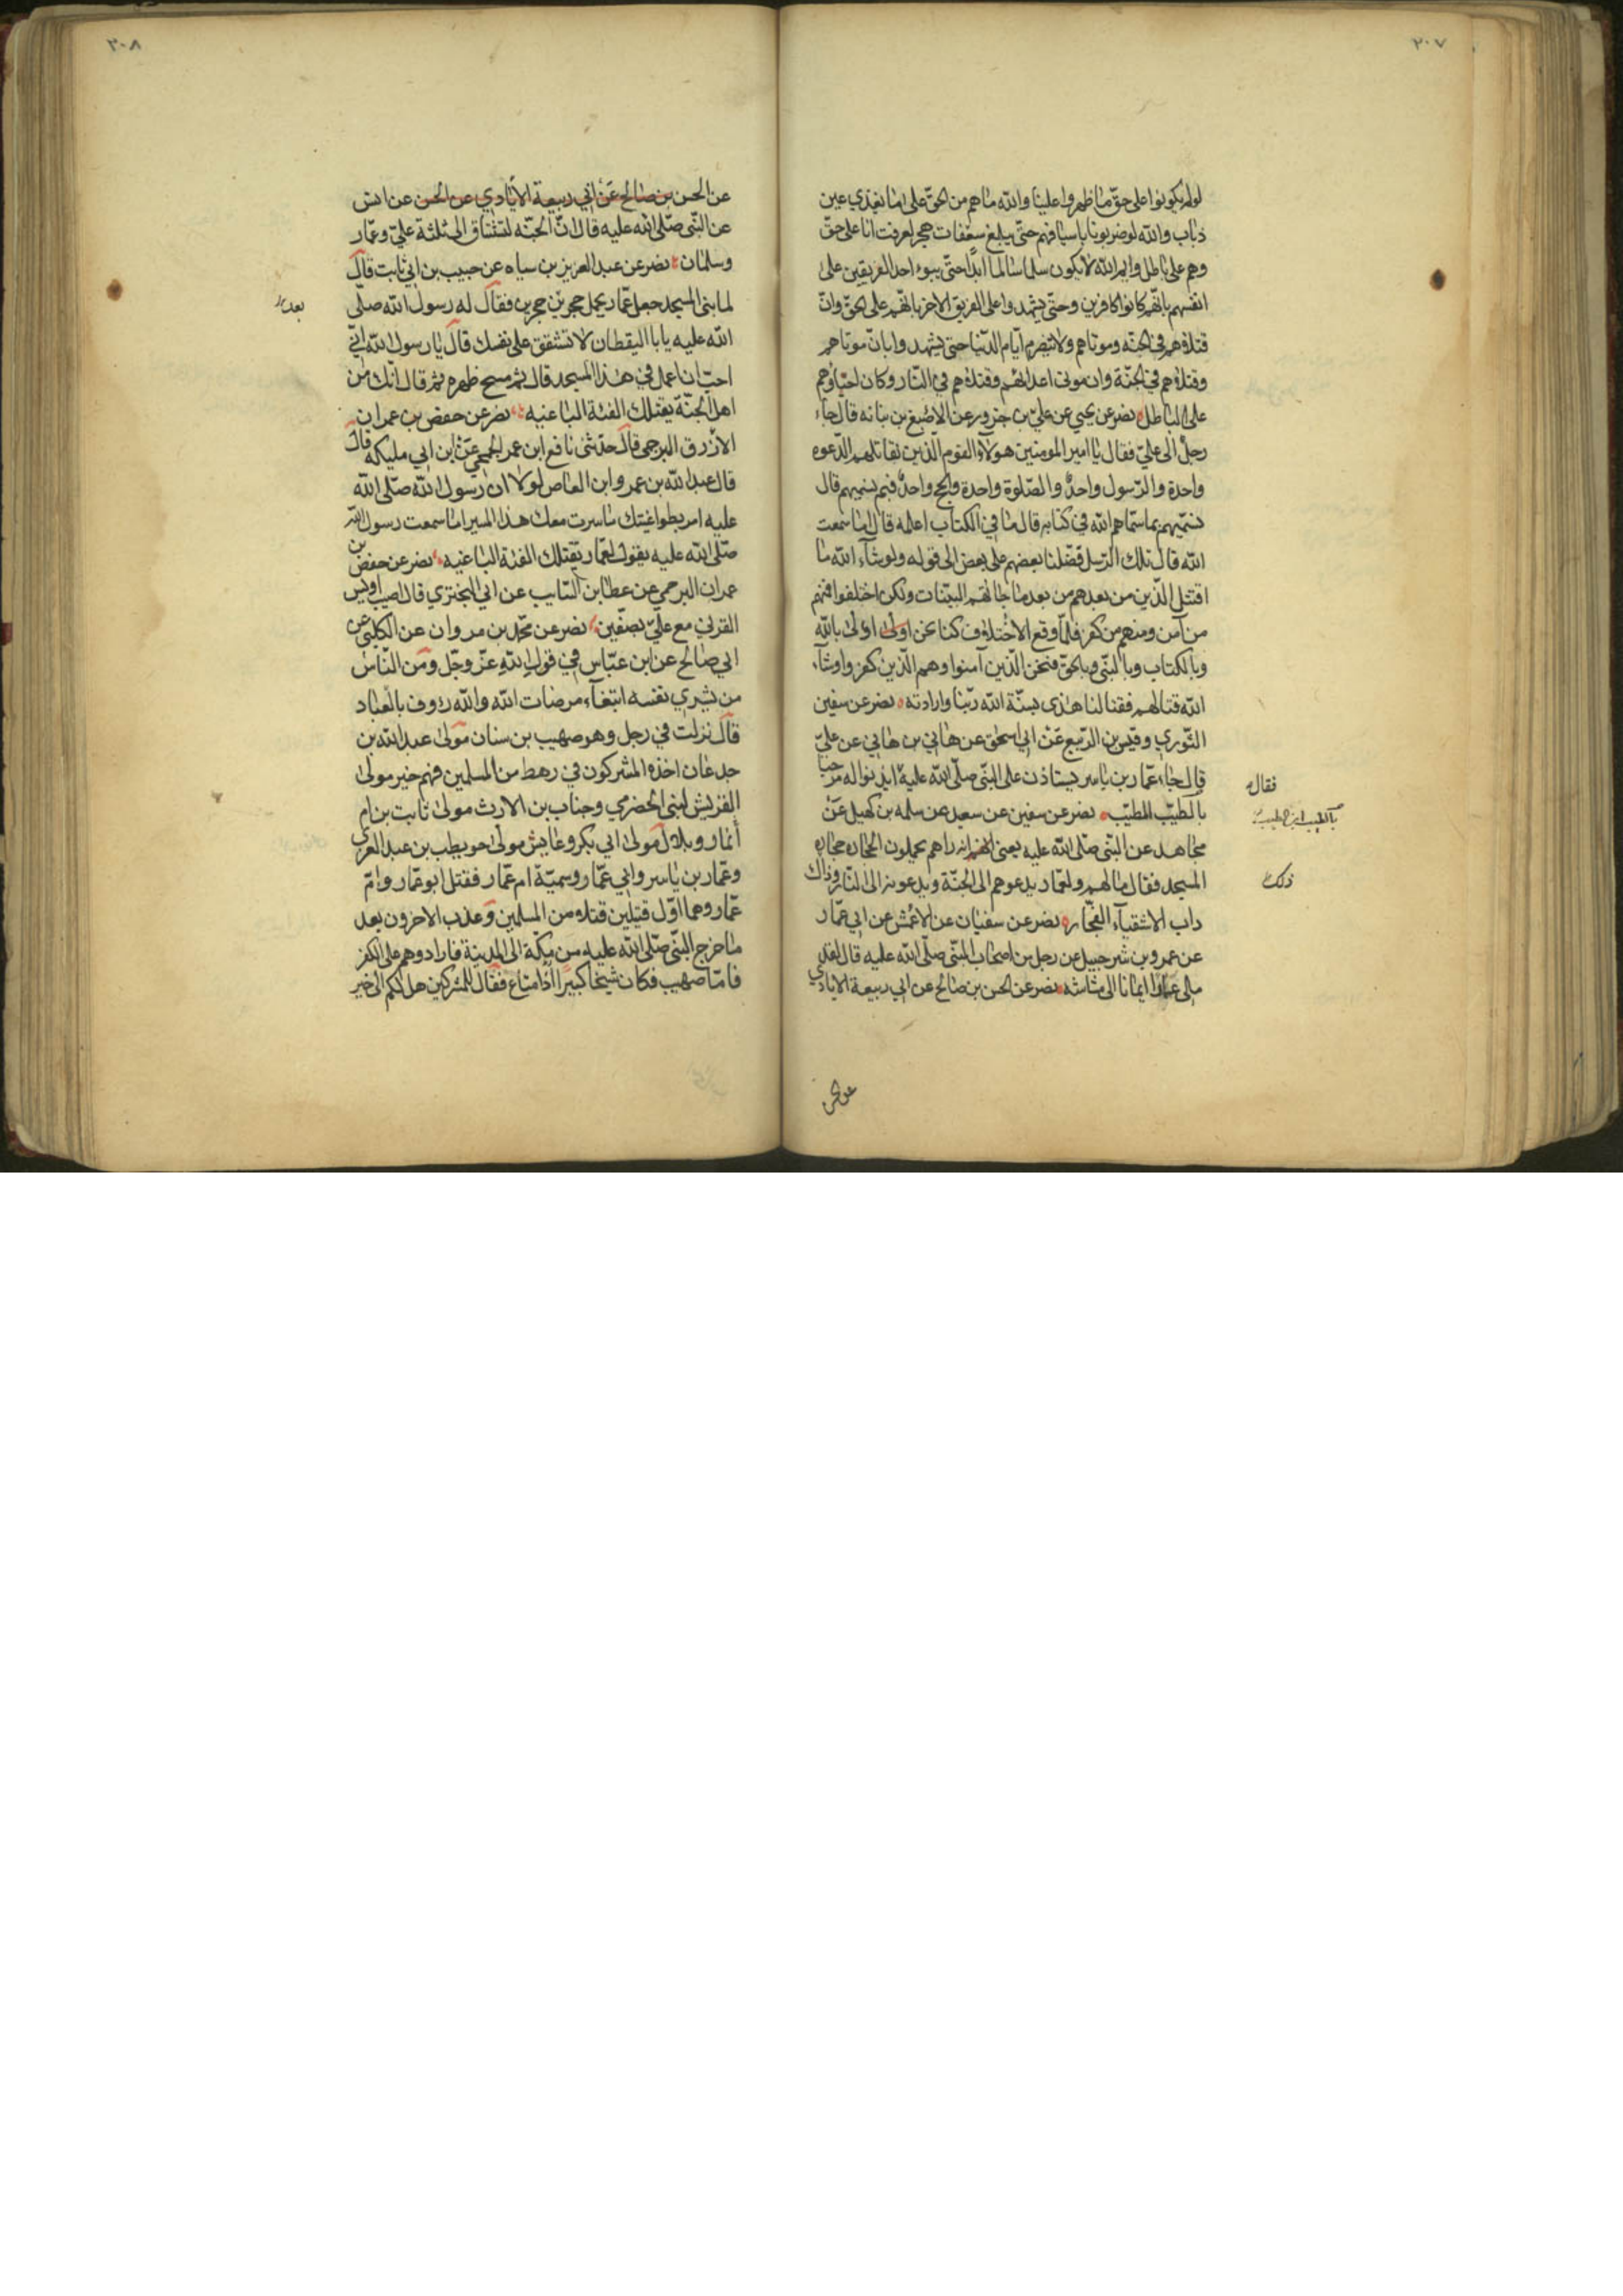 ٣٠٧
لو لم يكونوا على حق ما ظهروا علينا والله ما هم من الحق على ما يقذي عين
ذباب والله لو ضربونا باسيافهم حتى يبلغ سعفات هجر لعرفت انا على حق
وهم على باطل وايم الله لا يكون سلما سالما ابدا حتى يبوء احد الفريقين على
انفسهم بانهم كانوا كافرين وحتى يشهدوا على الفريق الاخر بانهم على الحق وان
قتلاهم في الجنة وموتاهم ولا ينصرم ايام الدنيا حتى يشهدوا بان موتاهم
وقتلاهم في الجنة وان موتى اعدائهم وقتلاهم في النار وكان احياؤهم
على الباطل نصر عن يحيي عن علي بن حزور عن الاصبغ بن نباته قال جاء
رجل الى علي فقال يا امير المومنين هولاء القوم الذين نقاتلهم الدعوه
واحدة والرسول واحد والصلوة واحدة والحج واحد فبم نسميهم قال
نسميهم بما سماهم الله في كتابه قال ما في الكتاب اعلمه قال اما سمعت
الله قال تلك الرسل فضلنا بعضهم على بعض الى قوله ولو شاء الله ما
اقتتل الذين من بعدهم من بعد ما جائتهم البينات ولكن اختلفوا فمنهم
من آمن ومنهم من كفر فلما وقع الاختلاف كنا نحن اولى اولى بالله
وبالكتاب وبالنبي وبالحق فنحن الذين آمنوا وهم الذين كفروا وشاء
الله قتالهم فقتالنا هذى بسنة الله ربنا وارادته نصر عن سفين
الثوري وقيس بن الربيع عن ابي اسحق عن هاني بن هاني عن علي
قال جاء عمار بن ياسر يستاذن على النبي صلى الله عليه ايذنوا له مرحبا
فقال
بالطيب المطيب نصر عن سفين عن سعيد عن سلمه بن كهيل عن
بالطيب ابن الطيب
مجاهد عن النبي صلى الله عليه يعني انه راهم يحملون الحجاره حجاره
المسجد فقال ما لهم ولعمار يدعوهم الى الجنة ويدعونه الى النار وذاك
ذلك
داب الاشقياء الفجار نصر عن سفيان عن الاعمش عن ابي عمار
عن عمرو بن شرحبيل عن رجل من اصحاب النبي صلى الله عليه قال لقد
ملى عمار ايمانا الى مشاشه نصر عن الحسن بن صالح عن ابي ربيعة الايادي
عن الحسن
٣٠٨
عن الحسن بن صالح عن ابي ربيعة الايادي عن الحسن عن انس
عن النبي صلى الله عليه قال ان الجنه لتشتاق الى ثلثة علي وعمار
وسلمان نصر عن عبد العزيز بن سياه عن حبيب بن ابي ثابت قال
لما بنى المسجد جعل عمار يحمل حجرين حجرين فقال له رسول الله صلى
الله عليه يا با اليقظان لا تشقق على نفسك قال يا رسول الله اني
احب ان اعمل في هذا المسجد قال ثم مسح ظهره ثم قال انك من
اهل الجنة يقتلك الفئة الباغيه نصر عن حفص بن عمران
الازرق البرجمي قال حدثنى نافع ابن عمر الجمحي عن ابن ابي مليكه قال
قال عبد الله بن عمرو ابن العاص لولا ان رسول الله صلى الله
عليه امر بطواعيتك ما سرت معك هذا المسير اما سمعت رسول الله
صلى الله عليه يقول لعمار يقتلك الفئة الباغيه نصر عن حفص بن
عمران البرجمي عن عطا بن السايب عن ابي البختري قال اصيب اويس
القرني مع علي بصفين نصر عن محمد بن مروان عن الكلبي عن
ابي صالح عن ابن عباس في قول الله عز وجل ومن الناس
من يشري نفسه ابتغاء مرضات الله والله رؤوف بالعباد
قال نزلت في رجل وهو صهيب بن سنان مولى عبد الله بن
جدعان اخذه المشركون في رهط من المسلمين فيهم خير مولى
القريش لبنى الحضرمي وخباب بن الارث مولى ثابت بن ام
أنمار وبلال مولى ابي بكر وعايش مولى حويطب بن عبد العزى
وعمار بن ياسر وابي عمار وسمية ام عمار فقتل ابو عمار وام
عمار وهما اول قتيلين قتلا من المسلمين وعذب الاخرون بعد
ما خرج النبي صلى الله عليه من مكة الى المدينة فارادوهم على الكفر
فاما صهيب فكان شيخا كبيرا اذا متاع فقال للمشركين هل لكم الى خير